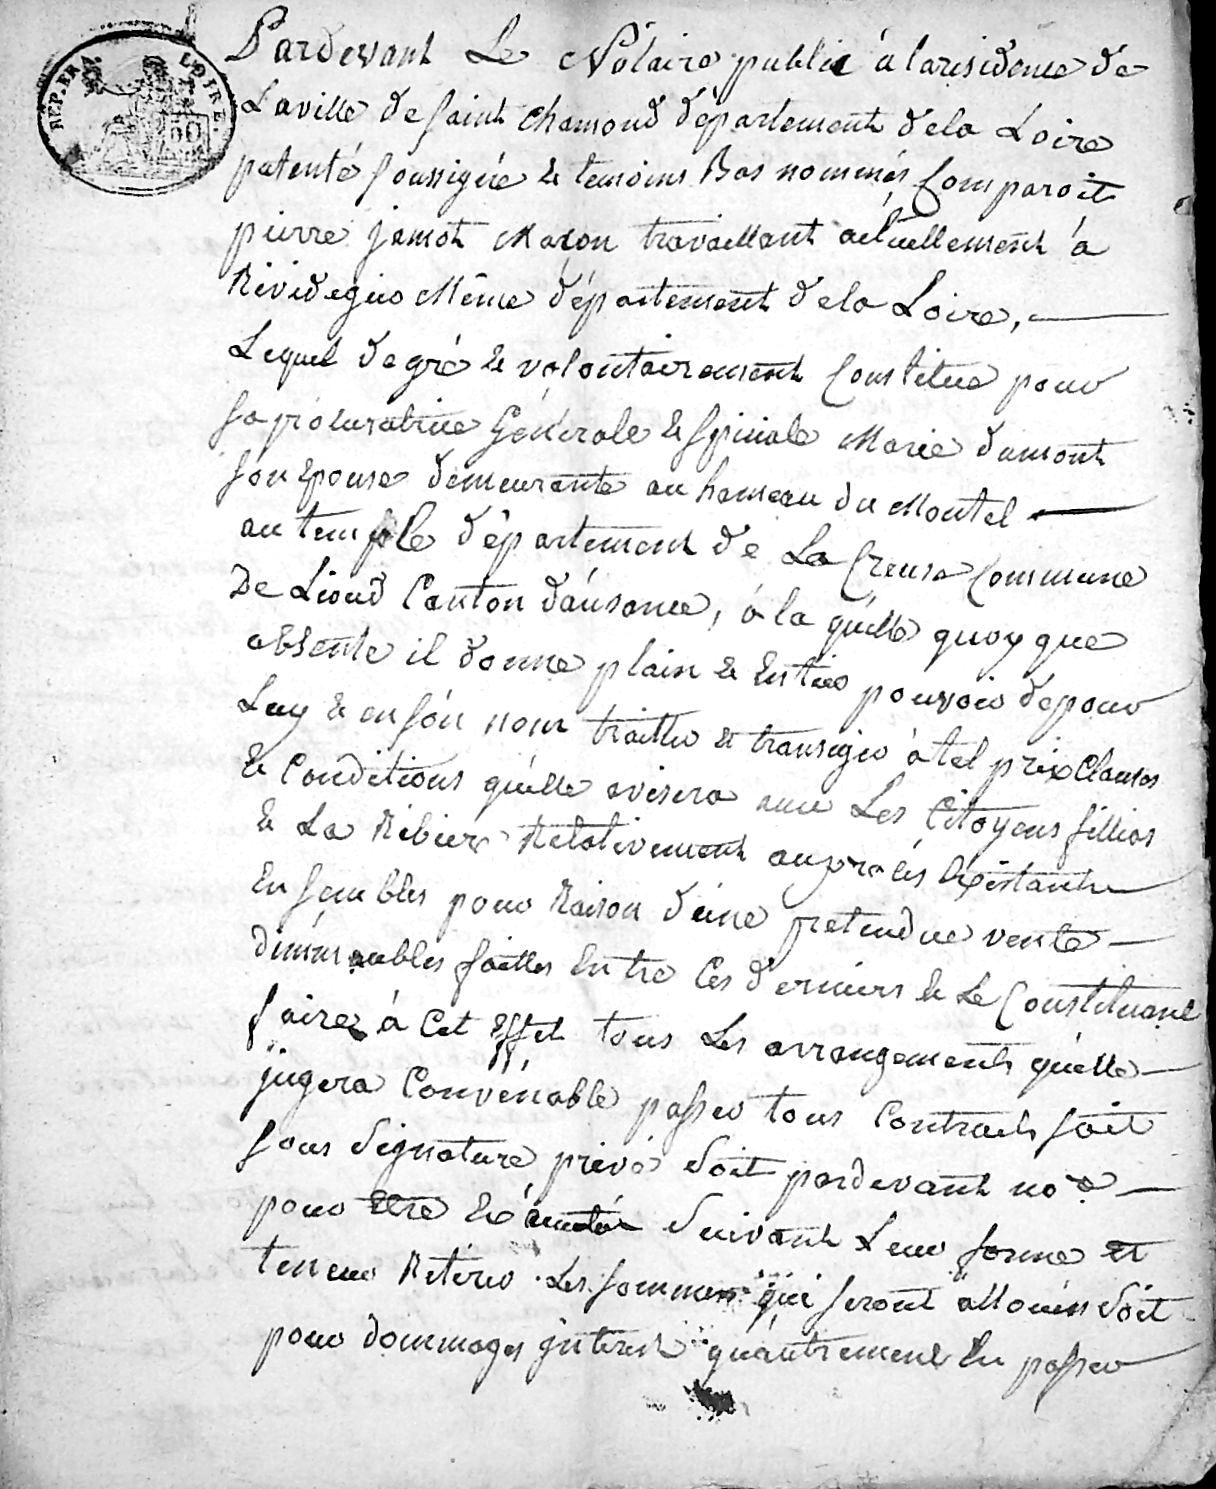 REP. FR. LOIRE.
50
Pardevant Le Notaire public à la residence de
La ville de saint chamond département dela Loire
patenté soussigné & temoins Bas nommés Comparoit
pierre jamot Maçon travaillant actuellement à
Rivedegier Même département dela Loire,
Lequel de gré & volontairement Constitue pour
sa procuratrice Générale & speciale Marie dumont
son Epouse demeurante au hameau du Montel
au temple département de La Creuse Commune
De Lioud Canton d'ausance, à la quélle quoyque
absente il donne plain & Entier pouvoir de pour
Luy & en són nom traitter & transiger à tel prix Clauses
& Conditions quélle avisera avec Les Citoyens fillias
& La Ribiere Relativement au procès Existant
Ensembles pour Raison d'une pretendue vente
d'immeubles faittes Entre Ces derniers & Le Constituant
faire à Cet Effet tous Les arrangements quélle
jugera Convénable passer tous Contracts soit
sous Signature privé Soit pardevant no.re
pour Etre Exécutés Suivant Leur forme et
teneur Retirer Les sommes qui seront allouées Soit
pour dommages jnterest qu'autrement En passer